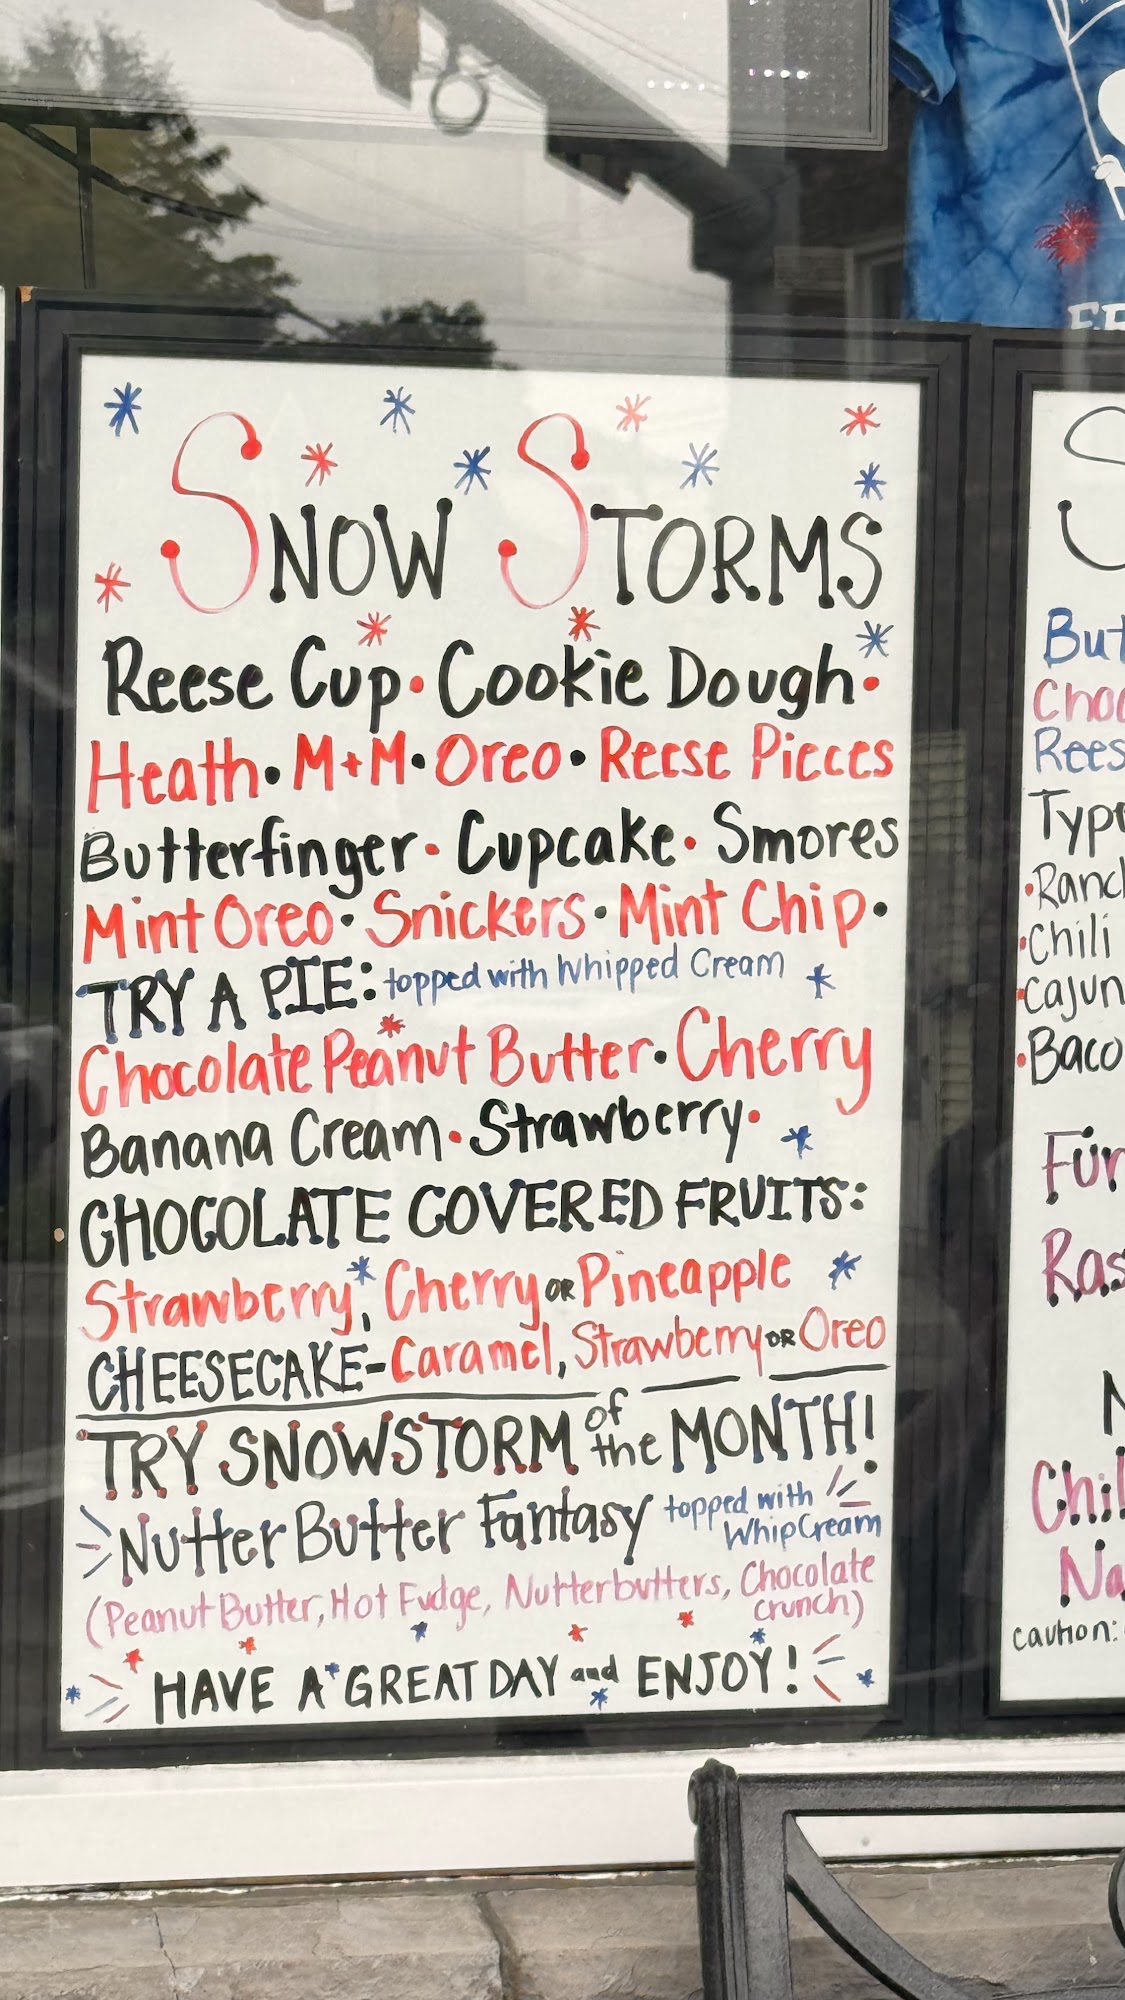 SNOW STORMS
Reese Cup • Cookie Dough •
Heath • M+M • Oreo • Reese Pieces
Butterfinger • Cupcake • Smores
Mint Oreo • Snickers • Mint Chip •
TRY A PIE: topped with Whipped Cream
Chocolate Peanut Butter • Cherry
Banana Cream • Strawberry •
CHOCOLATE COVERED FRUITS:
Strawberry, Cherry OR Pineapple
CHEESECAKE - Caramel, Strawberry OR Oreo
TRY SNOWSTORM of the MONTH!
Nutter Butter Fantasy topped with WhipCream
(Peanut Butter, Hot Fudge, Nutterbutters, Chocolate crunch)
HAVE A GREAT DAY and ENJOY!
But
Choc
Rees
Type
• Ranch
• Chili
• Cajun
• Baco
Fun
Ras
Chil
Na
caution: